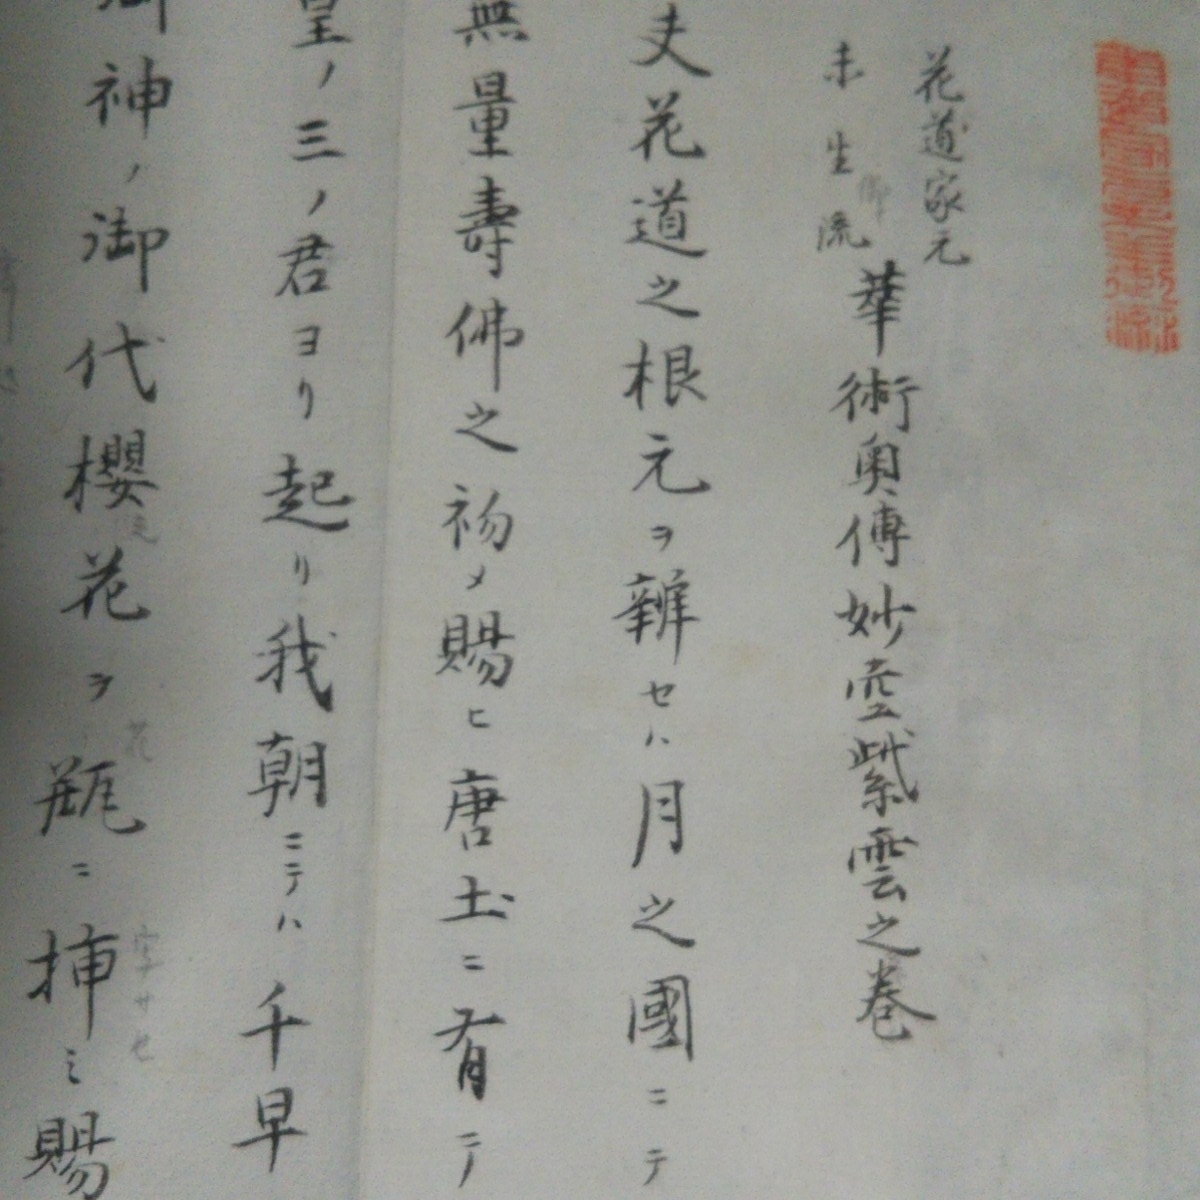 花道家元
未生流
華術奥傳妙空紫雲之巻
夫花道之根元ヲ辨セハ月之國ニテ
無量壽佛之初メ賜ヒ唐土ニ有テ
皇ノ三ノ君ヨリ起リ我朝ニテハ千早
御神ノ御代櫻花ヲ瓶ニ挿ミ賜